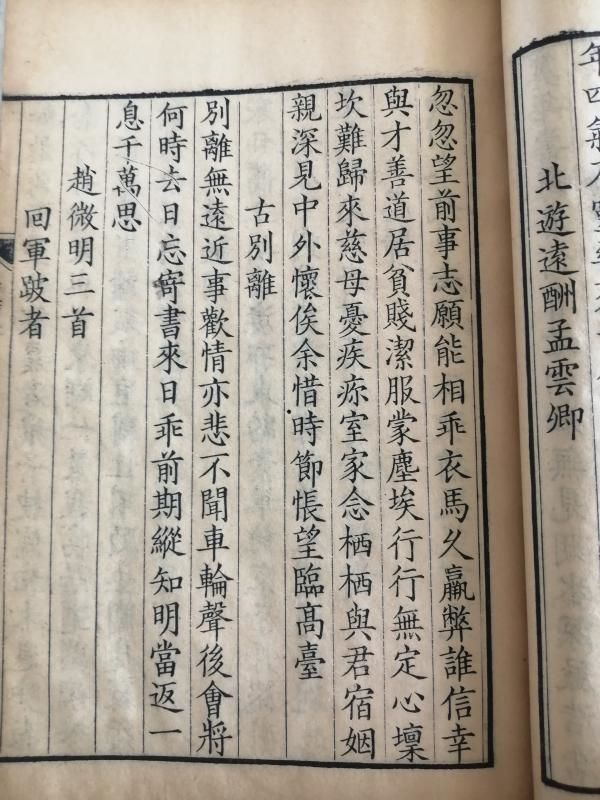 年四氣
北遊遠酬孟雲卿
忽忽望前事志願能相乖衣馬久羸弊誰信幸
與才善道居貧賤潔服蒙塵埃行行無定心壈
坎難歸來慈母憂疾疢室家念栖栖與君宿姻
親深見中外懷俟余惜時節悵望臨髙臺
古別離
別離無遠近事歡情亦悲不聞車輪聲後會將
何時去日忘寄書來日乖前期縱知明當返一
息千萬思
趙微明三首
回軍跛者